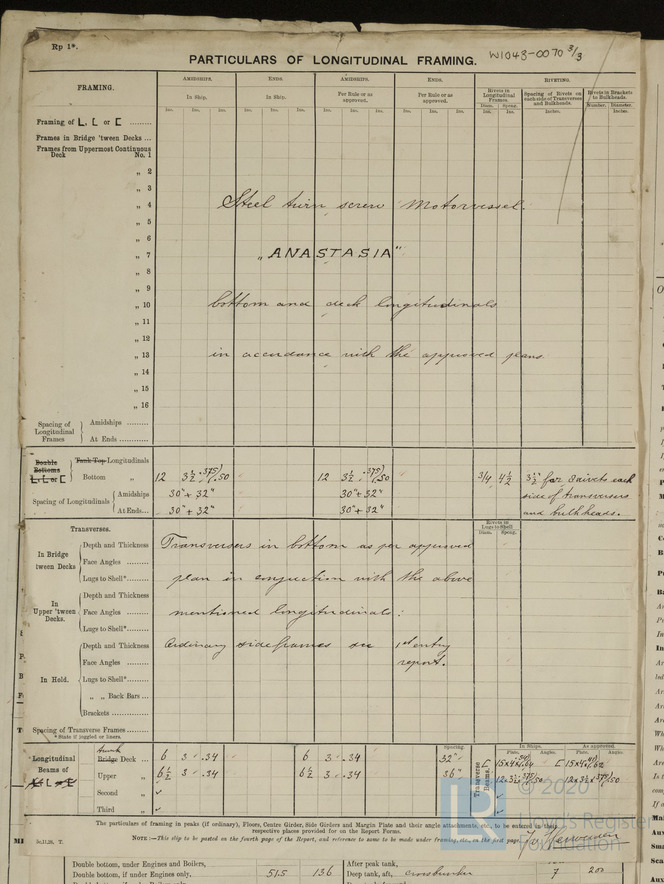 Rp 1*.
W1043-0070 3/3
PARTICULARS OF LONGITUDINAL FRAMING.
FRAMING.
AMIDSHIPS. ENDS. AMIDSHIPS. ENDS. RIVETING.
In Ship. In Ship. Per Rule or as approved. Per Rule or as approved.
Rivets in Longitudinal Frames
Spacing of Rivets on each side of Transverses and Bulkheads.
Rivets in Brackets to Bulkheads
Ins. Ins. Ins. Ins. Ins. Ins. Ins. Ins. Ins. Ins. Ins. Ins. Diam. Spcng. Inches. Number. Diameter.
Framing of L, L or [
Frames in Bridge 'tween Decks ...
Frames from Uppermost Continuous
Deck No. 1
„ 2
„ 3
„ 4 Steel twin screw Motorvessel.
„ 5
„ 6
„ 7 „ANASTASIA"
„ 8
„ 9
„ 10 bottom and deck longitudinals
„ 11
„ 12
„ 13 in accordance with the approved plans
„ 14
„ 15
„ 16
Spacing of Longitudinal Frames
Amidships
At Ends
Double Bottoms L, L or [
Tank Top Longitudinals
Bottom „ 12 3½ .375/.50 12 3½ .375/.50 3/4 4½ 3½" for 8 rivets each
Spacing of Longitudinals
Amidships 30" + 32" 30" + 32" side of transverses
At Ends 30" + 32" 30" + 32" and bulkheads.
Transverses.
Rivets in Lugs to Shell
Diam. Spcng.
In Bridge 'tween Decks
Depth and Thickness Transverses in bottom as per approved
Face Angles
Lugs to Shell* plan in conjuction with the above
In Upper 'tween Decks.
Depth and Thickness
Face Angles mentioned longitudinals:
Lugs to Shell*
In Hold.
Depth and Thickness Ordinary sideframes see 1st entry
Face Angles report.
Lugs to Shell*
„ „ Back Bars
Brackets
Spacing of Transverse Frames
* State if joggled or liners.
Spacing. In Ships. As approved.
Plate. Angle. Plate. Angle.
Longitudinal Beams of L L or [
Bridge Deck 6 3 .34 6 3 .34 32"
Upper „ 6½ 3 .34 6½ 3 .34 36"
Second „ ✓
Third „ ✓
Transverse Beams.
The particulars of framing in peaks (if ordinary), Floors, Centre Girder, Side Girders and Margin Plate and their angle attachments, etc., to be entered in their
respective places provided for on the Report Forms.
NOTE:—This ship to be posted on the fourth page of the Report, and reference to same to be made under framing, etc., on the first page.
© 2020
Lloyd's Register
Foundation
Double bottom, under Engines and Boilers, After peak tank,
Double bottom, if under Engines only, 51.5 136 Deep tank, aft, crossbunker 7 200